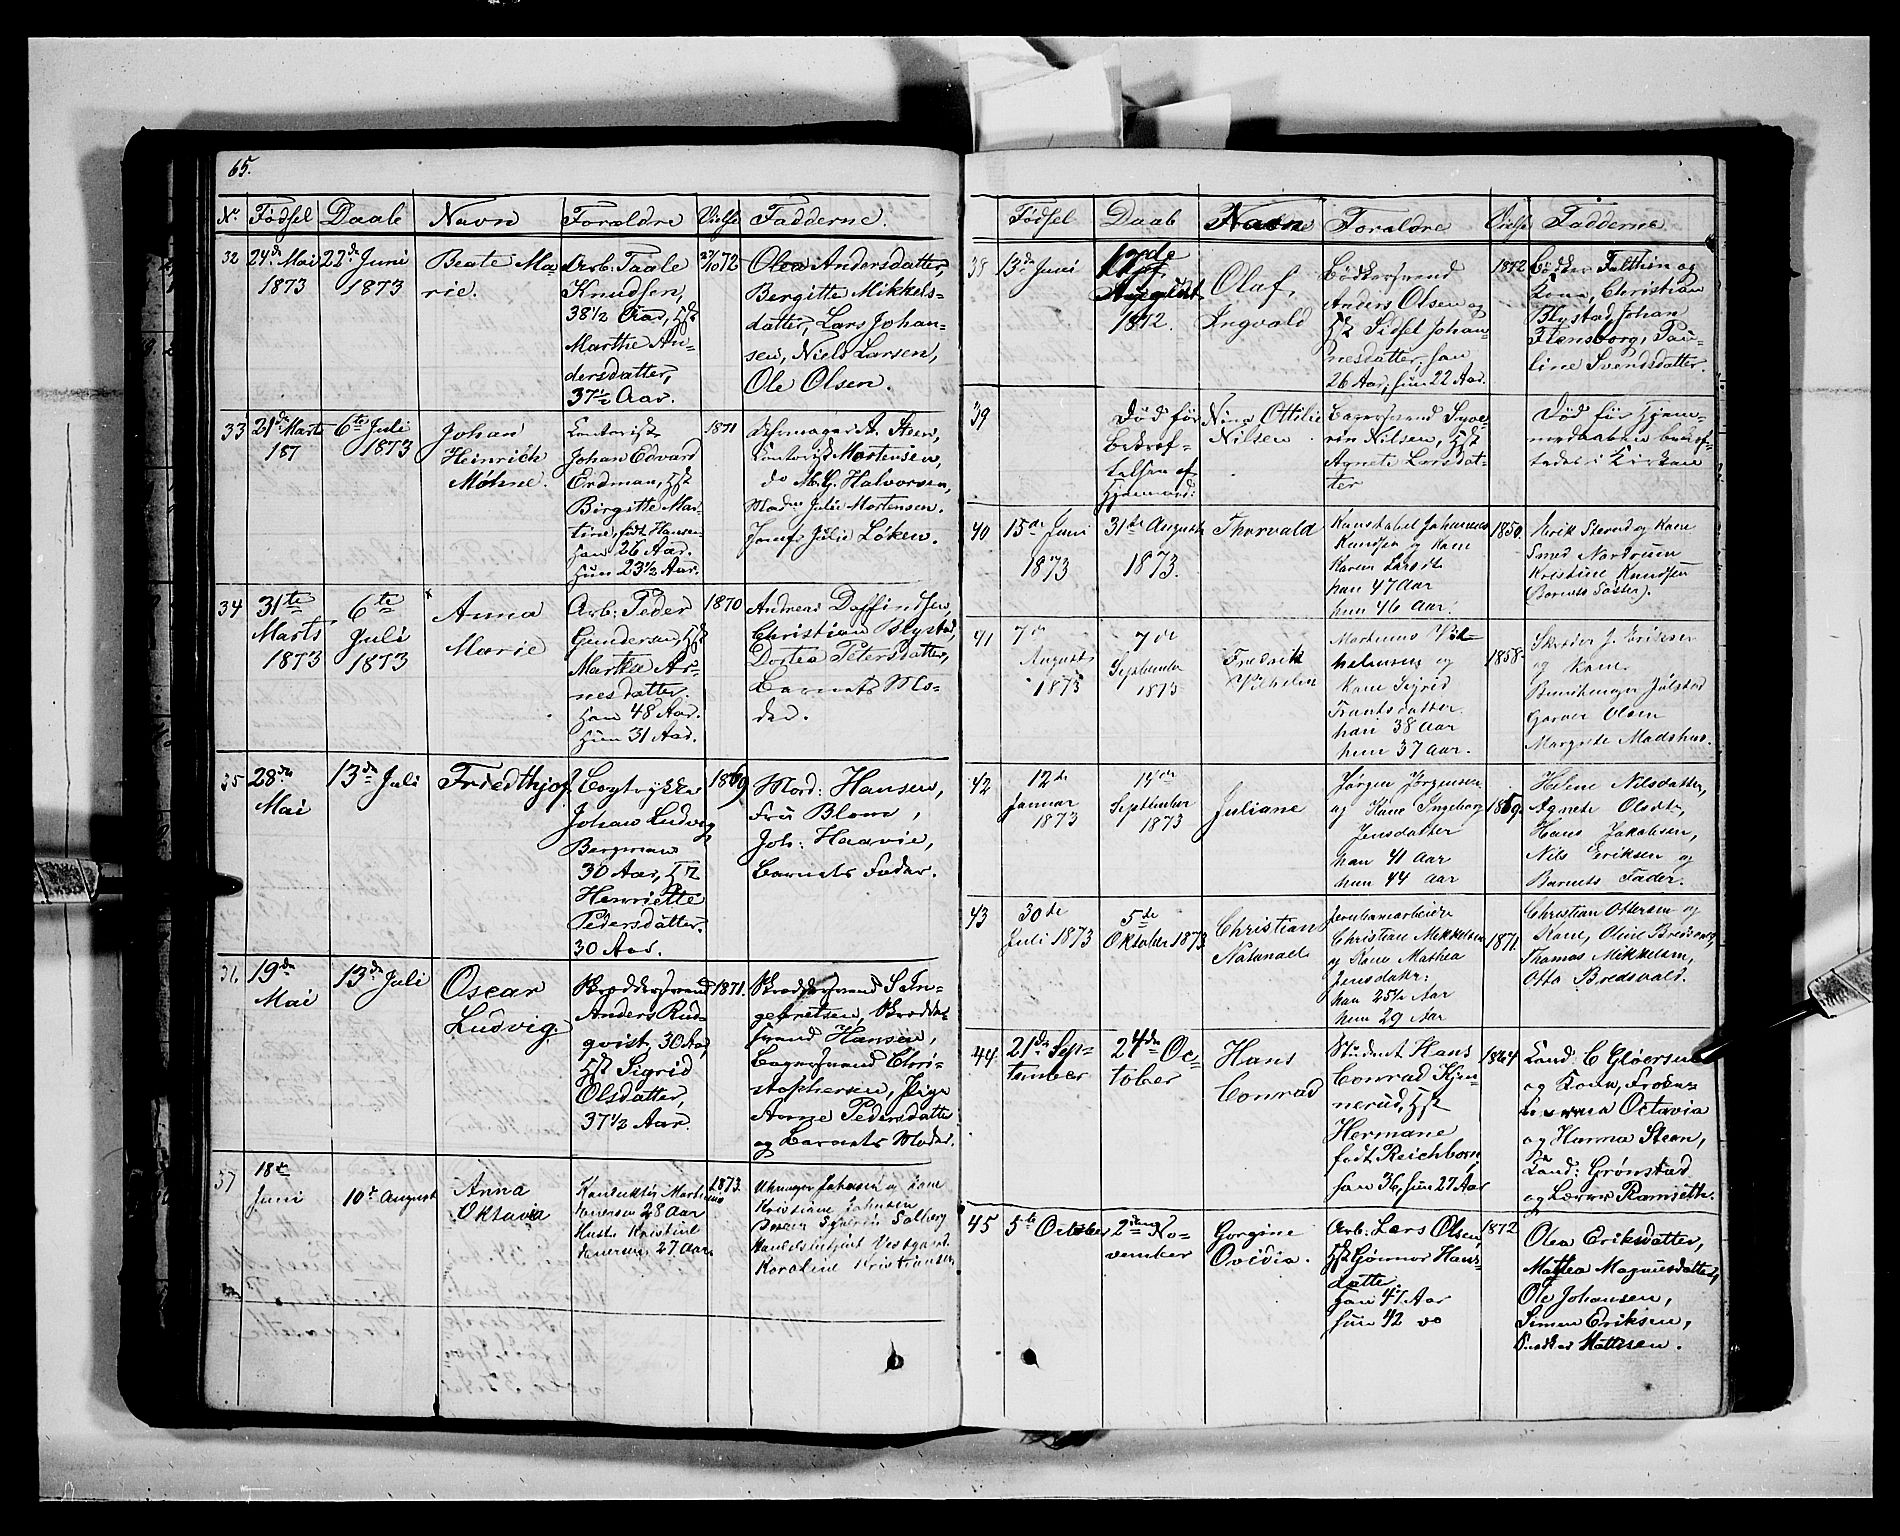 65.
No. Fødsel Daab Navn Forældre Vielse Fadderne.
32 24de Mai 1873
22de Juni 1873
Beate Marie.
Arb: Paale
Knudsen,
38½ Aar,
Marthe An-
dersdatter,
37½ Aar.
27/10 72
Olea Andersdatter,
Bergitte Mikkels-
datter, Lars Johan-
sen, Niels Larsen,
Ole Olsen.
33 21de Marts
187
6te Juli
1873
Johan
Heinrich
Møhne.
Kontorist
Johan Edvard
Erdman,
Birgitte Mar-
tine, født Hansen
Han 26 Aar.
Hun 23½ Aar.
1871
Mortensen,
do M. G. Halvorsen,
Mad. Julie Mortensen.
Jomfr Julie Løken.
34 31te
Marts
1873
6te
Juli
1873
Anna
Marie
Arb: Peder
Gundersen,
Marthe Ar-
nesdatter.
Han 48 Aar.
Hun 31 Aar.
1870
Andreas Daffindsen,
Christian Blystad,
Dortea Petersdatter,
Barnets Mo-
der.
35 28de
Mai
13de Juli
Friedthjof
Bogtrykker
Johan Ludvig
Bergman
30 Aar,
Henriette
Pedersdatter.
30 Aar.
1869
Mad: Hansen,
Fru Blom,
Joh: Haavie,
Barnets Fader.
36 19de
Mai
13de Juli
Oscar
Ludvig.
Skræddersvend
Anders Rud-
qvist, 30 Aar,
Sigrid
Olsdatter,
37½ Aar.
1871.
Skræddersvend S. In-
gebretsen, Skrædder-
svend Hansen,
Bagersvend Chri-
stophersen, Pige
Anne Pedersdatter
og Barnets Moder.
37 18de
Juni
10de August
Anna
Oktavia
Konduktør Martinius
Iversen 28 Aar
Hustr Kristine
Iversen, 27 Aar
1873.
Uhrmager Johansen og Kone
Kristiane Johnsen
Solberg
Handelsbetjent Vestgaard
Karoline Kristiansen
Fødsel Daab Navn Forældre Vielse Fadderne
38 13de Juni
17de
August
1872.
Olaf,
Ingvald
Bødkersvend
Anders Olsen og
Sidsel Johan-
nesdatter, han
26 Aar, hun 22 Aar.
1872
Bødker Falthin og
Kone, Christian
Blystad, Johan
Flensborg, Pau-
line Svendsdatter.
39
Død før
Bekræf-
telsen af
Hjemmed:
Nina Ottilie
Nilsen.
Bagersvend Seve-
rin Nilsen,
Agnete Larsdat-
ter
Død før Hjem-
medaaben bekræf-
tedes i Kirken
40 15de Juni
1873
31te August
1873.
Thorvald
Konstabel Johannes
Knudsen og Kone
Karen Larsdt
han 47 Aar
hun 46 Aar.
1850.
Erik Stensrud og Kone
Smed Nordrum
Kristine Knudsen
(Barnets Søster).
41 7de
August
1873
7de
September
1873
Fredrik
Vilhelm
Martinus Vil-
helmsen og
Kone Sigrid
Frantsdatter
han 38 Aar
hun 37 Aar.
1858.
Skræder J. Eriksen
og Kone.
Bundtmager Jølstad
Garver Olsen
Margrete Madshus.
42 12te
Januar
1873
14de
September
1873
Juliane
Jørgen Jørgensen
og Kone Ingeborg
Jensdatter
han 41 Aar
hun 44 Aar
1869.
Helene Nilsdatter,
Agnete Olsdt,
Hans Jakobsen,
Nils Eriksen og
Barnets Fader.
43 30te
Juli 1873
5te
Oktober 1873
Christian
Natanael
Jernbanearbeider
Christian Mikkelsen
og Kone Mathea
Jensdatr:
han 25½ Aar
hun 29 Aar
1871.
Christian Ottersen og
Kone, Oline Bredsvold,
Thomas Mikkelsen,
Otto Bredsvald.
44. 21de Sep-
tember
24de Oc-
tober
Hans
Conrad
Student Hans
Conrad Kjen-
nerud,
Hermane
født Reichborn,
han 36, hun 27 Aar
1864
Kand: C Gløersen
og Kone, Frøken-
Octavia
og Hanna Steen,
Kand: Grønstad
og Lærer Ramseth.
45 5te October
2den No-
vember
Gorgine
Ovidia.
Arb: Lars Olsen
Gunnor Hans-
datte
Han 47 Aar
hun 42 do
1872
Olea Eriksdatter,
Mathea Magnusdatter,
Ole Johansen,
Simen Eriksen,
Mathisen.